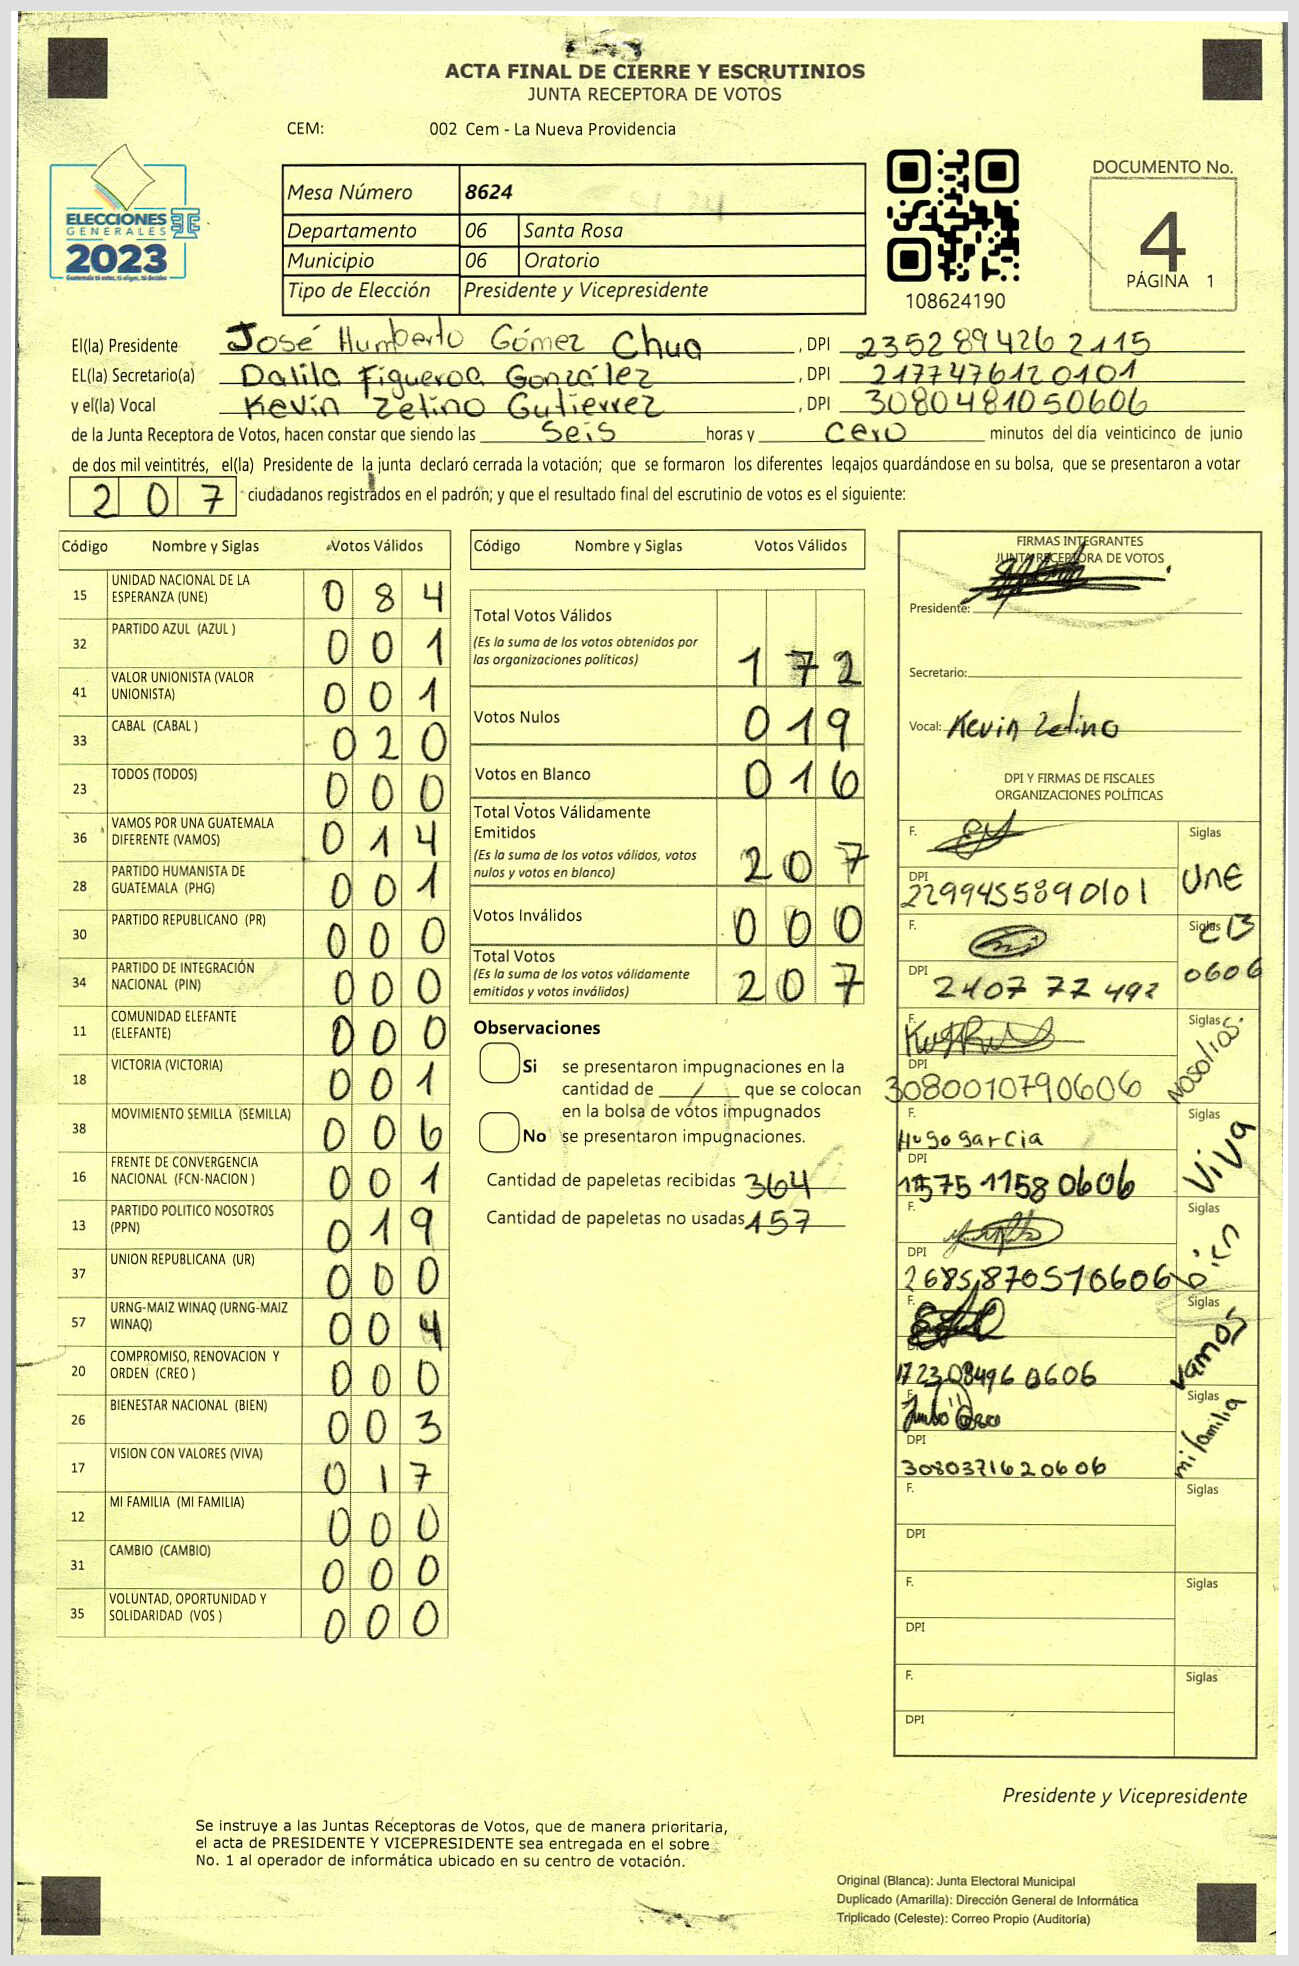 ACTA FINAL DE CIERRE Y ESCRUTINIOS
JUNTA RECEPTORA DE VOTOS
CEM: 002 Cem - La Nueva Providencia
ELECCIONES
GENERALES
2023
Mesa Número 8624
Departamento 06 Santa Rosa
Municipio 06 Oratorio
Tipo de Elección Presidente y Vicepresidente
108624190
DOCUMENTO No.
4
PÁGINA 1
El(la) Presidente José Humberto Gómez Chua, DPI 2352894262115
EL(la) Secretario(a) Dalila Figueroa González, DPI 2177476120101
y el(la) Vocal Kevin Zetino Gutierrez, DPI 3080481050606
de la Junta Receptora de Votos, hacen constar que siendo las Seis horas y Cero minutos del día veinticinco de junio
de dos mil veintitrés, el(la) Presidente de la junta declaró cerrada la votación; que se formaron los diferentes legajos guardándose en su bolsa, que se presentaron a votar
207 ciudadanos registrados en el padrón; y que el resultado final del escrutinio de votos es el siguiente:
Código Nombre y Siglas Votos Válidos
15 UNIDAD NACIONAL DE LA ESPERANZA (UNE) 084
32 PARTIDO AZUL (AZUL ) 001
41 VALOR UNIONISTA (VALOR UNIONISTA) 001
33 CABAL (CABAL ) 020
23 TODOS (TODOS) 000
36 VAMOS POR UNA GUATEMALA DIFERENTE (VAMOS) 014
28 PARTIDO HUMANISTA DE GUATEMALA (PHG) 001
30 PARTIDO REPUBLICANO (PR) 000
34 PARTIDO DE INTEGRACIÓN NACIONAL (PIN) 000
11 COMUNIDAD ELEFANTE (ELEFANTE) 000
18 VICTORIA (VICTORIA) 001
38 MOVIMIENTO SEMILLA (SEMILLA) 006
16 FRENTE DE CONVERGENCIA NACIONAL (FCN-NACION ) 001
13 PARTIDO POLITICO NOSOTROS (PPN) 019
37 UNION REPUBLICANA (UR) 000
57 URNG-MAIZ WINAQ (URNG-MAIZ WINAQ) 004
20 COMPROMISO, RENOVACION Y ORDEN (CREO ) 000
26 BIENESTAR NACIONAL (BIEN) 003
17 VISION CON VALORES (VIVA) 017
12 MI FAMILIA (MI FAMILIA) 000
31 CAMBIO (CAMBIO) 000
35 VOLUNTAD, OPORTUNIDAD Y SOLIDARIDAD (VOS ) 000
Código Nombre y Siglas Votos Válidos
Total Votos Válidos
(Es la suma de los votos obtenidos por
las organizaciones políticas) 172
Votos Nulos 019
Votos en Blanco 016
Total Votos Válidamente
Emitidos
(Es la suma de los votos válidos, votos
nulos y votos en blanco) 207
Votos Inválidos 000
Total Votos
(Es la suma de los votos válidamente
emitidos y votos inválidos) 207
Observaciones
Si se presentaron impugnaciones en la
cantidad de / que se colocan
en la bolsa de votos impugnados
No se presentaron impugnaciones.
Cantidad de papeletas recibidas 364
Cantidad de papeletas no usadas 157
FIRMAS INTEGRANTES
JUNTA RECEPTORA DE VOTOS
Presidente:
Secretario:
Vocal: Kevin Zetino
DPI Y FIRMAS DE FISCALES
ORGANIZACIONES POLÍTICAS
F. Siglas
DPI 2299455890101 UNE
F. Siglas CB
DPI 2407 77 492 0606
F. Siglas
DPI 3080010790606
F. Hugo Garcia Siglas Viva
DPI
F. Siglas bien
DPI 2685870510606
F. Siglas vamos
DPI
F. Siglas mi familia
DPI 3080371620606
F. Siglas
DPI
F. Siglas
DPI
F. Siglas
DPI
Presidente y Vicepresidente
Se instruye a las Juntas Receptoras de Votos, que de manera prioritaria,
el acta de PRESIDENTE Y VICEPRESIDENTE sea entregada en el sobre
No. 1 al operador de informática ubicado en su centro de votación.
Original (Blanca): Junta Electoral Municipal
Duplicado (Amarilla): Dirección General de Informática
Triplicado (Celeste): Correo Propio (Auditoría)